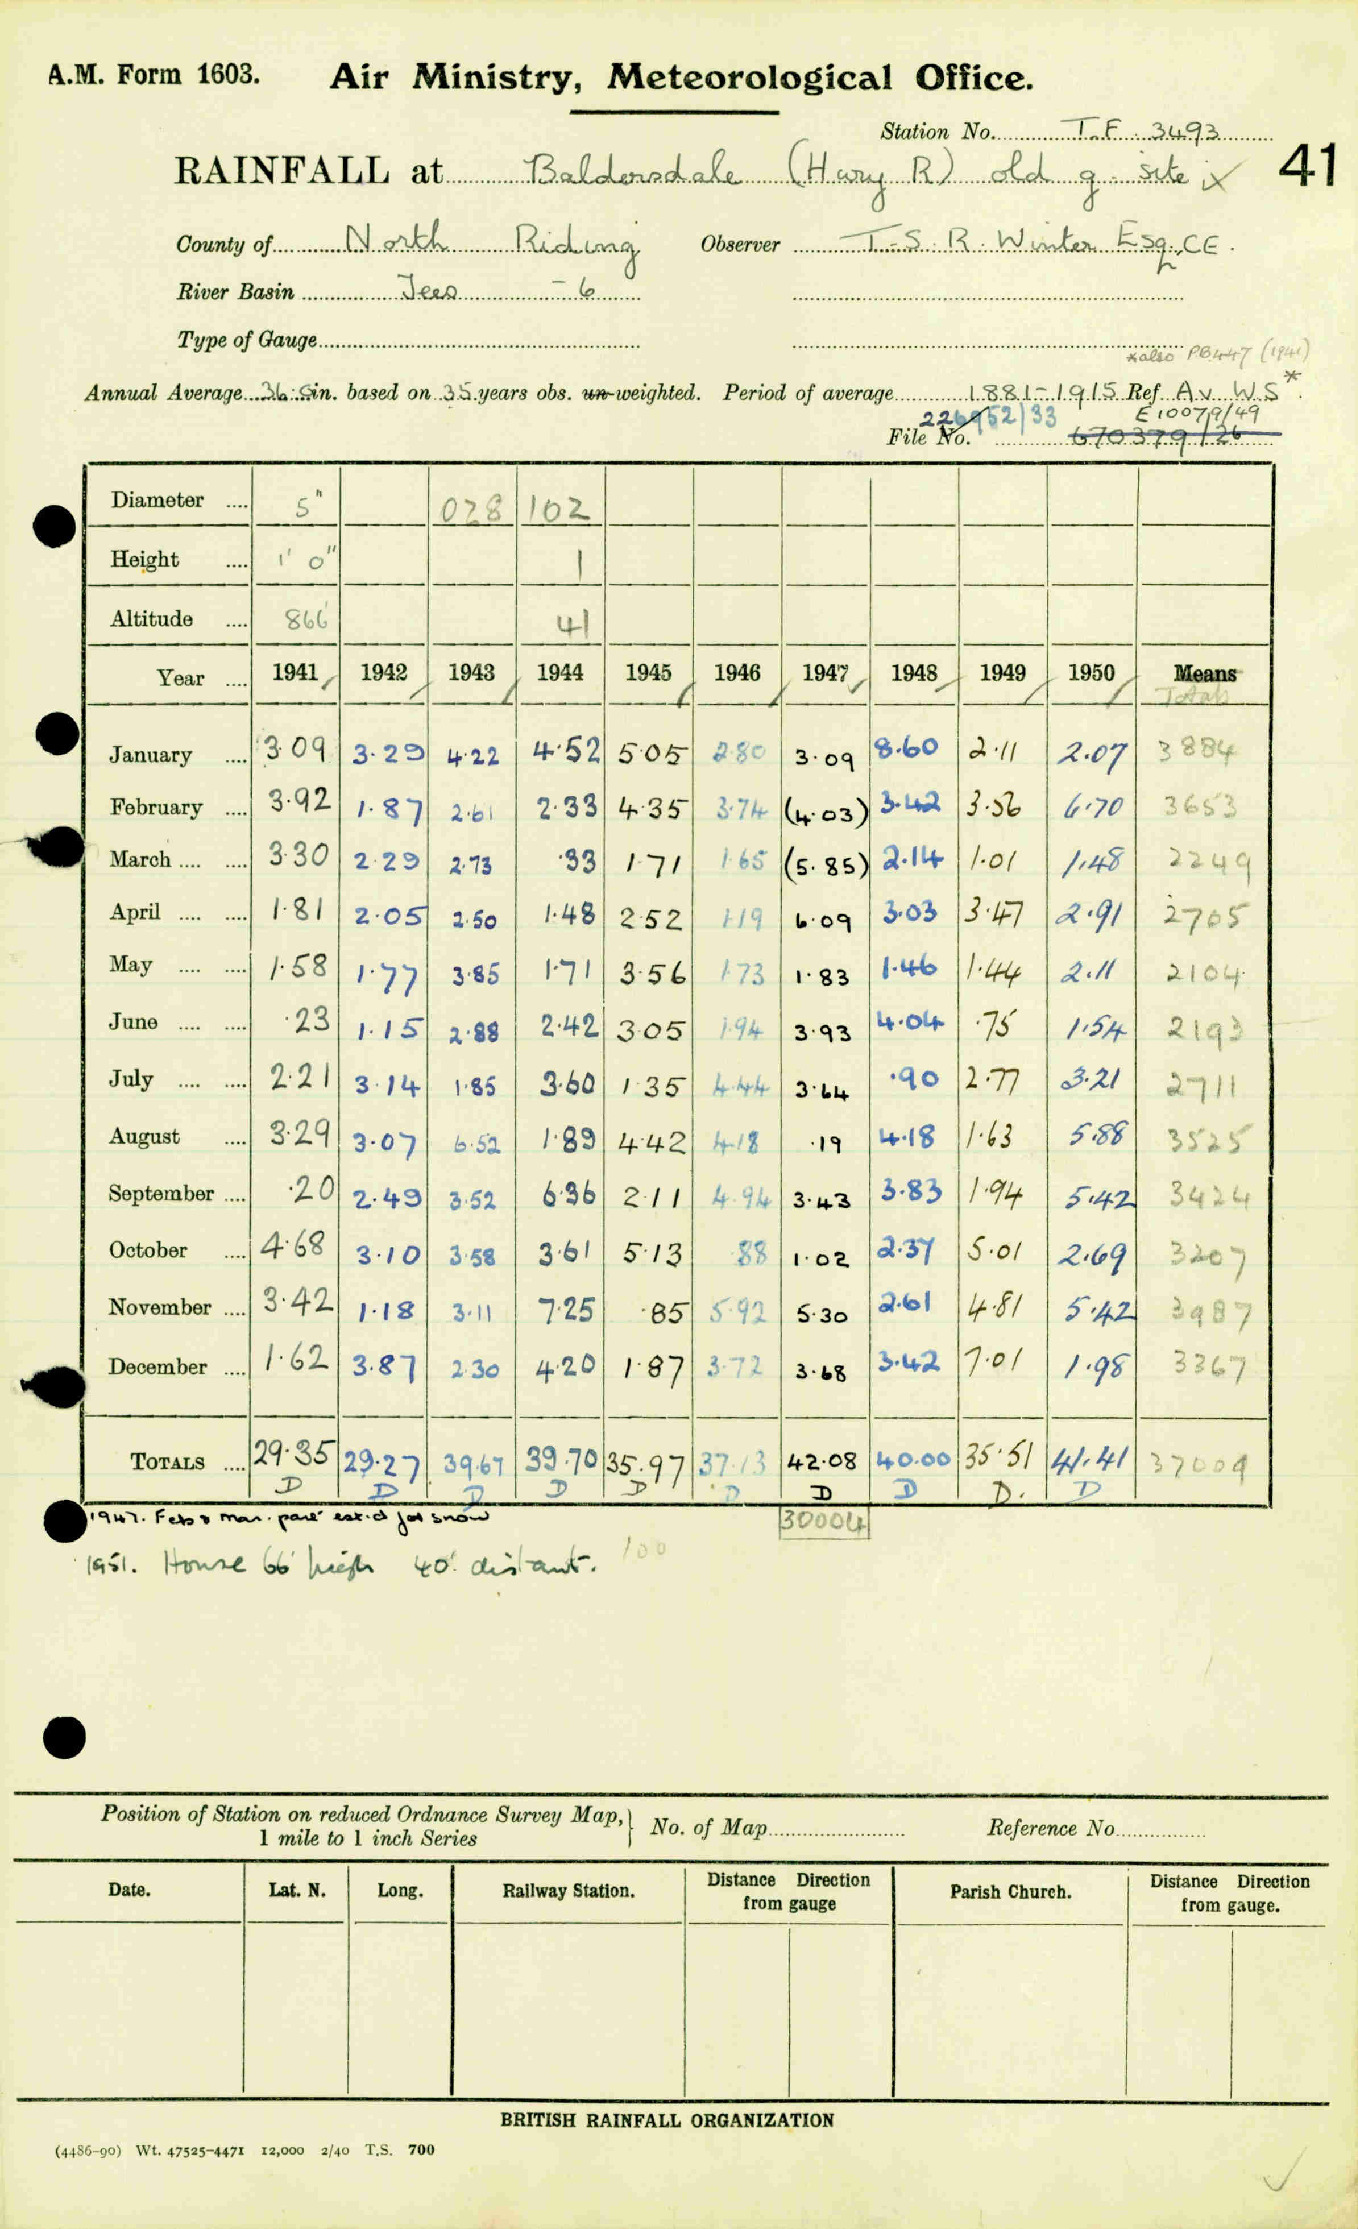 A.M. Form 1603. Air Ministry, Meteorological Office.
Station No. T.F. 3493
RAINFALL at Baldersdale (Hury R) old g. site ix 41
County of North Riding Observer T.S.R. Winter Esq, CE.
River Basin Tees - 6
Type of Gauge
*also PB447 (1941)
Annual Average 36.6 in. based on 35 years obs. un-weighted. Period of average 1881-1915 Ref. Av. W.S.*
226952/33 E10079/49
File No. 670379/26
Diameter 5" 028 102
Height 1' 0" 1
Altitude 866 41
Year 1941 1942 1943 1944 1945 1946 1947 1948 1949 1950 Means
Totals
January 3.09 3.29 4.22 4.52 5.05 2.80 3.09 8.60 2.11 2.07 3884
February 3.92 1.87 2.61 2.33 4.35 3.74 (4.03) 3.42 3.56 6.70 3653
March 3.30 2.29 2.73 .33 1.71 1.65 (5.85) 2.14 1.01 1.48 2249
April 1.81 2.05 2.50 1.48 2.52 1.19 6.09 3.03 3.47 2.91 2705
May 1.58 1.77 3.85 1.71 3.56 1.73 1.83 1.46 1.44 2.11 2104
June .23 1.15 2.88 2.42 3.05 1.94 3.93 4.04 .75 1.54 2193
July 2.21 3.14 1.85 3.60 1.35 4.44 3.64 .90 2.77 3.21 2711
August 3.29 3.07 6.52 1.89 4.42 4.18 .19 4.18 1.63 5.88 3525
September .20 2.49 3.52 6.36 2.11 4.94 3.43 3.83 1.94 5.42 3424
October 4.68 3.10 3.58 3.61 5.13 .88 1.02 2.37 5.01 2.69 3207
November 3.42 1.18 3.11 7.25 .85 5.92 5.30 2.61 4.81 5.42 3987
December 1.62 3.87 2.30 4.20 1.87 3.72 3.68 3.42 7.01 1.98 3367
TOTALS 29.35 29.27 39.67 39.70 35.97 37.13 42.08 40.00 35.51 41.41 37009
D D D D D D D D D. D
1947. Feb & Mar. part est.d for snow 30004
1951. House 66' high 40' distant. 100
Position of Station on reduced Ordnance Survey Map, } No. of Map Reference No.
1 mile to 1 inch Series
Date. Lat. N. Long. Railway Station. Distance Direction from gauge Parish Church. Distance Direction from gauge.
BRITISH RAINFALL ORGANIZATION
(4486-90) Wt. 47525-4471 12,000 2/40 T.S. 700